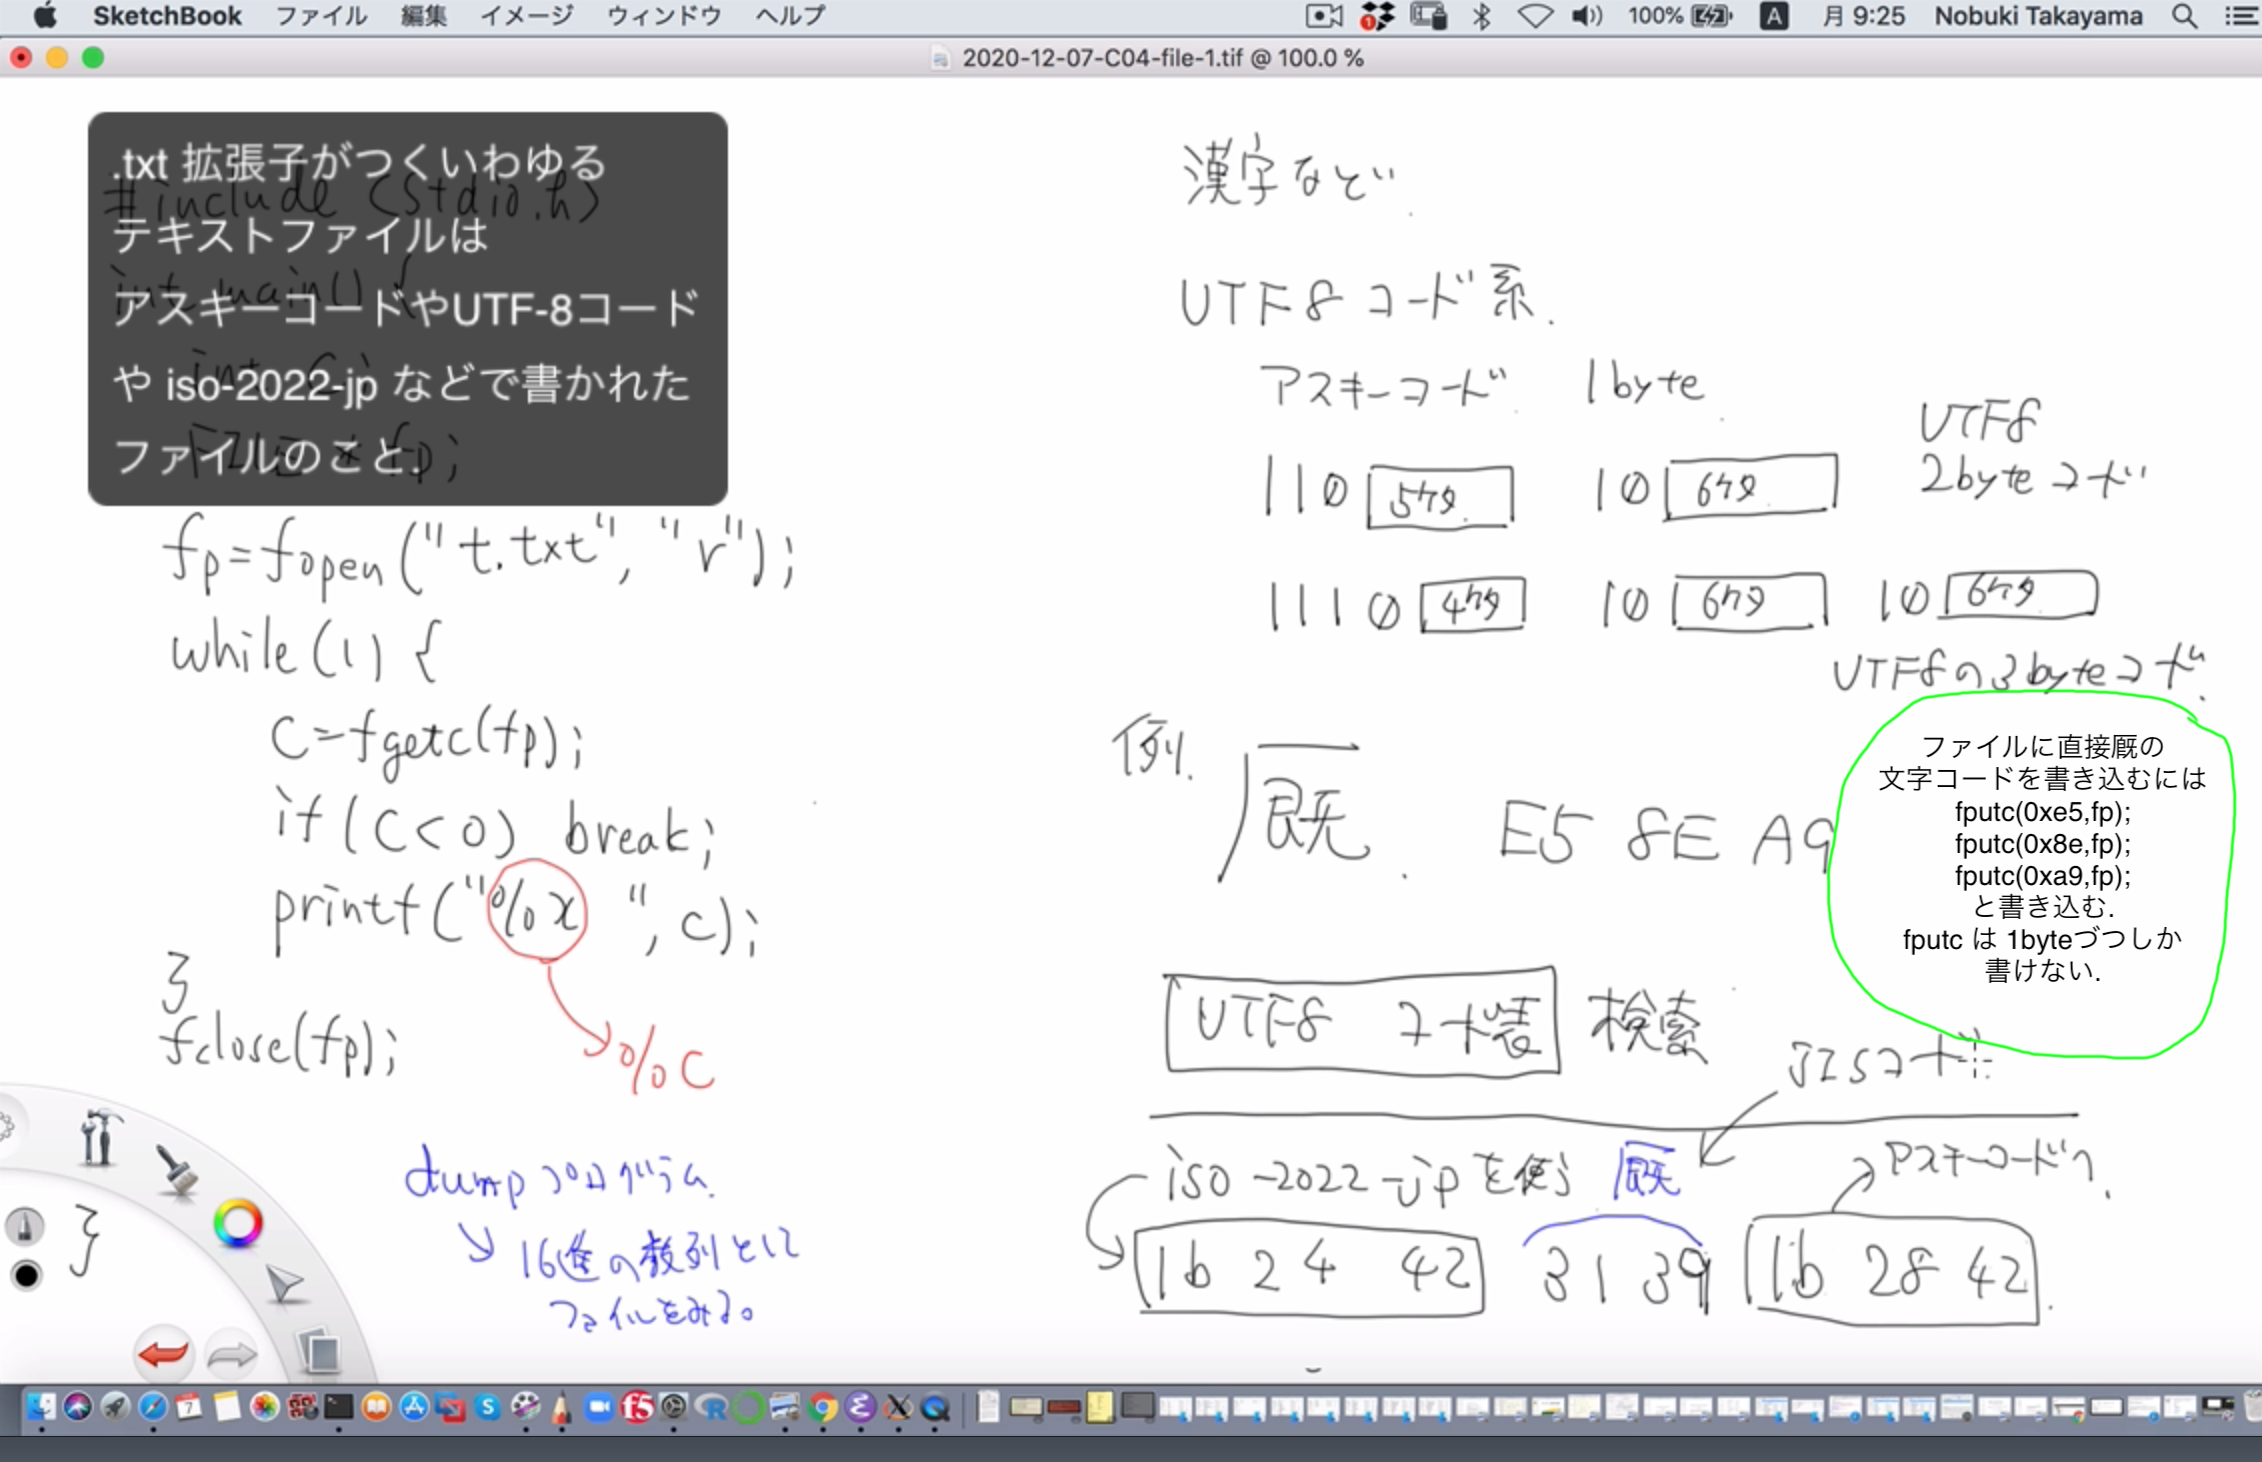 SketchBook ファイル 編集 イメージ ウィンドウ ヘルプ 100% A 月 9:25 Nobuki Takayama
2020-12-07-C04-file-1.tif @ 100.0 %
.txt 拡張子がつくいわゆる
テキストファイルは
アスキーコードやUTF-8コード
や iso-2022-jp などで書かれた
ファイルのこと.
#include <stdio.h>
int main() {
int c;
FILE * fp;
fp=fopen("t.txt", "r");
while(1) {
c=fgetc(fp);
if(c<0) break;
printf("%x ", c);
}
fclose(fp);
%c
}
dumpプログラム
16進の数列として
ファイルをみる。
漢字など.
UTF8 コード系.
アスキーコード 1byte
110 5ケタ 10 6ケタ
UTF8
2byteコード
1110 4ケタ 10 6ケタ 10 6ケタ
UTF8の3byteコード.
例. 厩. E5 8E A9
ファイルに直接厩の
文字コードを書き込むには
fputc(0xe5,fp);
fputc(0x8e,fp);
fputc(0xa9,fp);
と書き込む.
fputc は 1byteづつしか
書けない.
UTF8 コード表 検索
JISコード
iso-2022-jpを使う 厩 アスキーコードへ.
1b 24 42 31 39 1b 28 42.